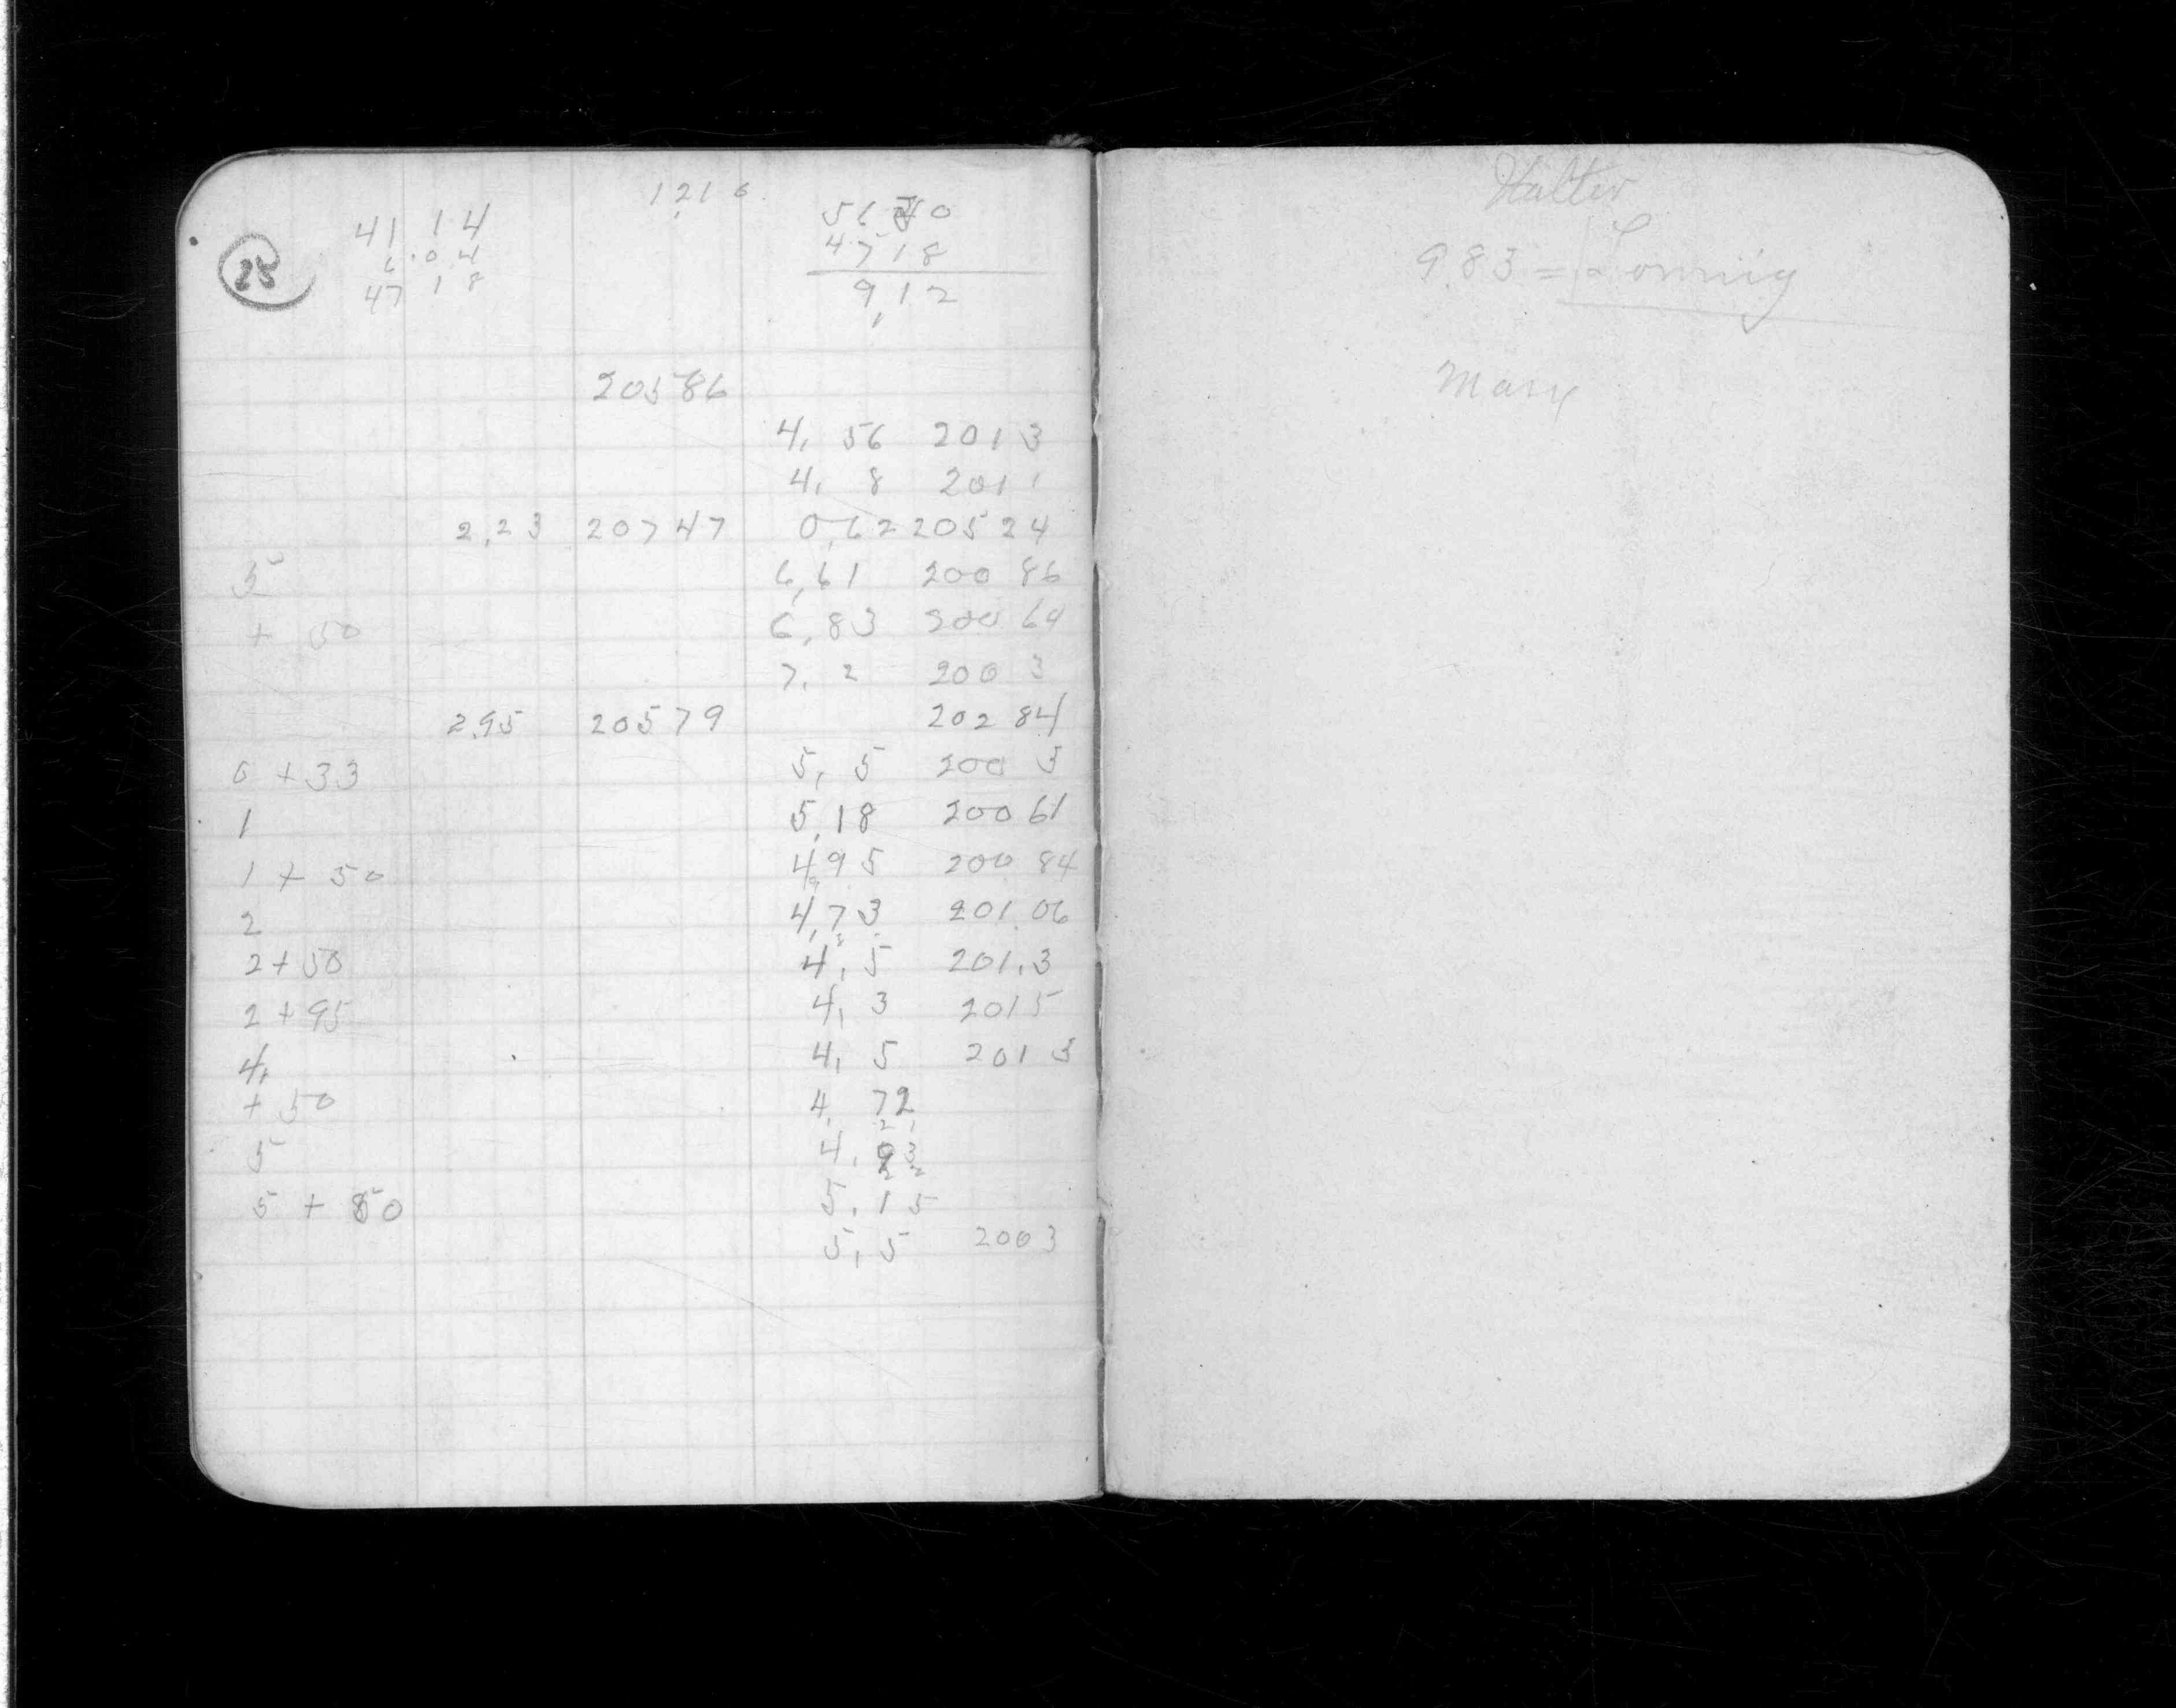 1216
25
41 14
6.04
47 18
5630
4718
9,12
20586
4, 56 2013
4, 8 2011
2,23 20747 0,62 20524
5 6,61 200 86
+ 50 6,83 200 64
7, 2 200 3
2.95 20579 202 84
0 +33 5, 5 200 3
1 5,18 200 61
1 + 50 4,95 200 84
2 4,73 201 06
2+50 4, 5 201.3
2+95 4, 3 2015
4, 4, 5 201 3
+ 50 4, 72
5 4, 93
5 + 50 5.15
5, 5 2003
Walter
9.83 =
Mary